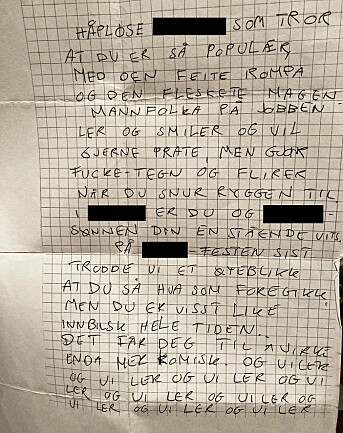 HÅPLØSE SOM TROR
AT DU ER SÅ POPULÆR,
MED DEN FEITE ROMPA
OG DEN FLESKETE MAGEN.
MANNFOLKA PÅ JOBBEN
LER OG SMILER OG VIL
GJERNE PRATE, MEN GJØR
FUCKE-TEGN OG FLIRER
NÅR DU SNUR RYGGEN TIL.
I ER DU OG -
SØNNEN DIN EN STÅENDE VITS.
PÅ -FESTEN SIST
TRODDE VI ET ØYEBLIKK
AT DU SÅ HVA SOM FOREGIKK,
MEN DU ER VISST LIKE
INNBILSK HELE TIDEN..
DET FÅR DEG TIL Å VIRKE
ENDA MER KOMISK. OG VI LER
OG VI LER OG VI LER OG VI
LER OG VI LER OG VI LER OG
VI LER OG VI LER OG VI LER